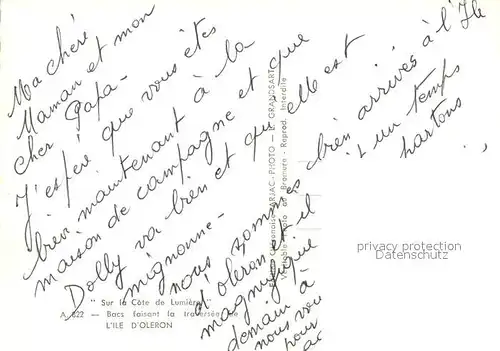 Ma chère
Maman et mon
cher Papa -
J'espère que vous êtes
bien maintenant à la
maison de campagne et que
Dolly va bien et qu'elle est
mignonne -
nous sommes bien arrivés à l'Ile
d'oleron et il un temps
magnifique partons
demain à
nous vou
pour
" Sur la Côte de Lumière
A. 822 - Bacs faisant la traversée de
L'ILE D'OLERON
JARJAC-PHOTO - GRANDSART
Véritable Photo au Bromure - Reprod. Interdite
privacy protection
Datenschutz